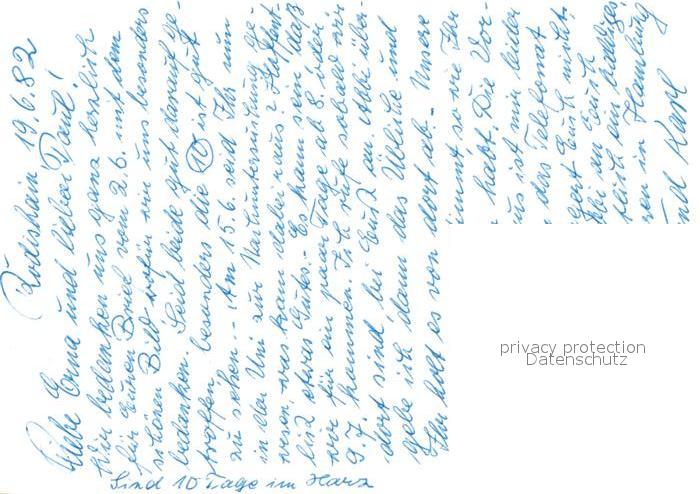 Rodishain 19.6.82
Liebe Erna und lieber Paul!
Wir bedanken uns ganz herzlich
für Euren Brief vom 2.6. mit dem
schönen Bild wofür wir uns besonders
bedanken. Seid beide gut darauf ge-
troffen, besonders die ist gut
zu sehen. -- Am 15.6. seid Ihr nun
in der Uni zur Voruntersuchung ge-
wesen, was kam dabei raus? Hoffent-
lich etwas Gutes. - Es kann sein, daß
wir für ein paar Tage ab 8. oder
9.7. kommen. Ich rufe sobald wir
dort sind bei Euch an. Alles über-
gebe ich dann das Übliche und
Ihr holt es von dort ab. - Unsere
nimmt so wie Ihr
habt. Die Vor-
ist mir leider
das Telefonat
Euch nicht,
Euch
ein baldiges
in Hamburg
und Karl
Sind 10 Tage im Harz
privacy protection
Datenschutz